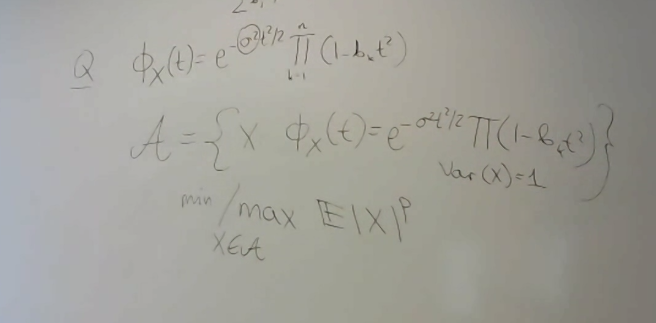 Q φ_X(t) = e^{-σ²t²/2} ∏_{k=1}^{n} (1-b_k t²)
A = { X φ_X(t) = e^{-σ²t²/2} ∏(1-b_k t²) }
Var(X) = 1
min / max E|X|^p
X∈A